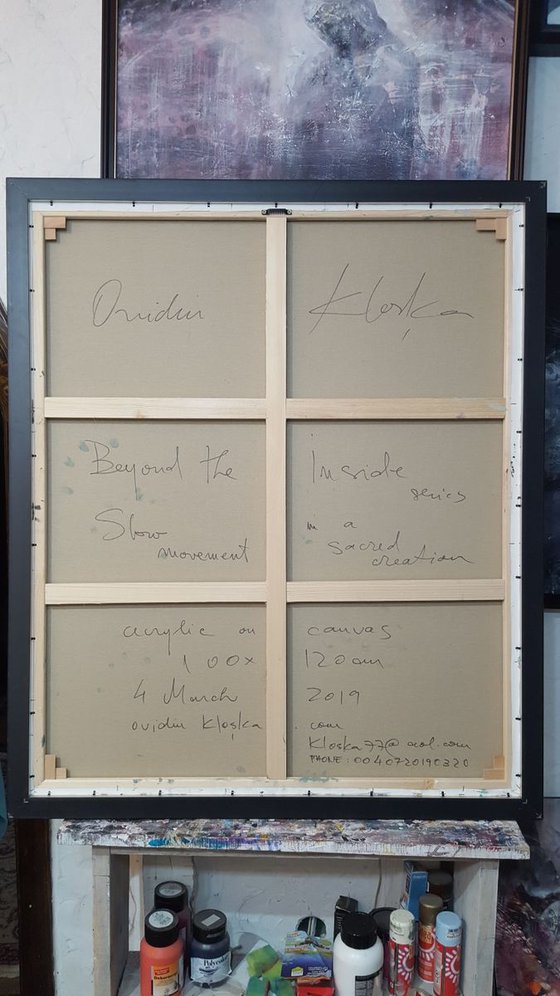 Ovidiu Kloșka
Beyond the Inside
series
Slow in a
movement sacred
creation
acrylic on canvas
100x 120cm
4 March 2019
ovidiu kloșka . com
kloska77@aol.com
PHONE: 0040720190320